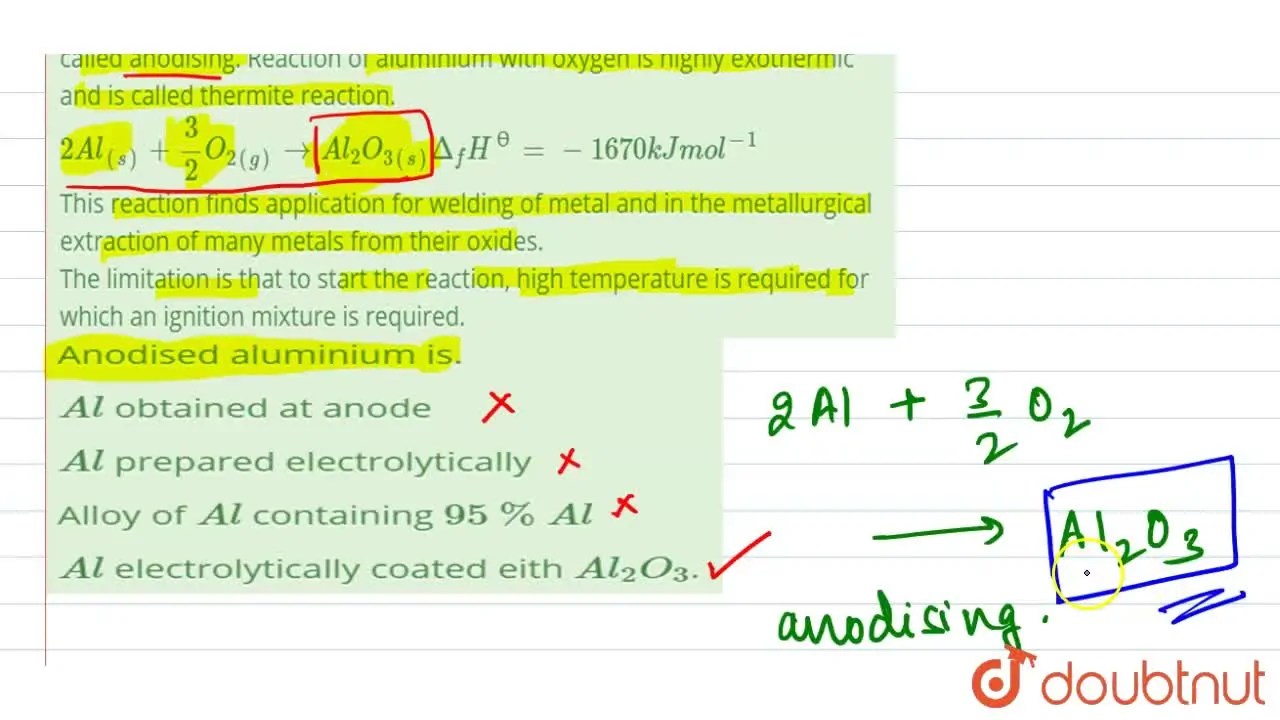 called anodising. Reaction of aluminium with oxygen is highly exothermic
and is called thermite reaction.
2Al(s) + 3/2 O2(g) → Al2O3(s) ΔfH^θ = −1670kJmol^−1
This reaction finds application for welding of metal and in the metallurgical
extraction of many metals from their oxides.
The limitation is that to start the reaction, high temperature is required for
which an ignition mixture is required.
Anodised aluminium is.
Al obtained at anode
Al prepared electrolytically
Alloy of Al containing 95 % Al
Al electrolytically coated eith Al2O3.
2Al + 3/2 O2
→ Al2O3
anodising.
doubtnut